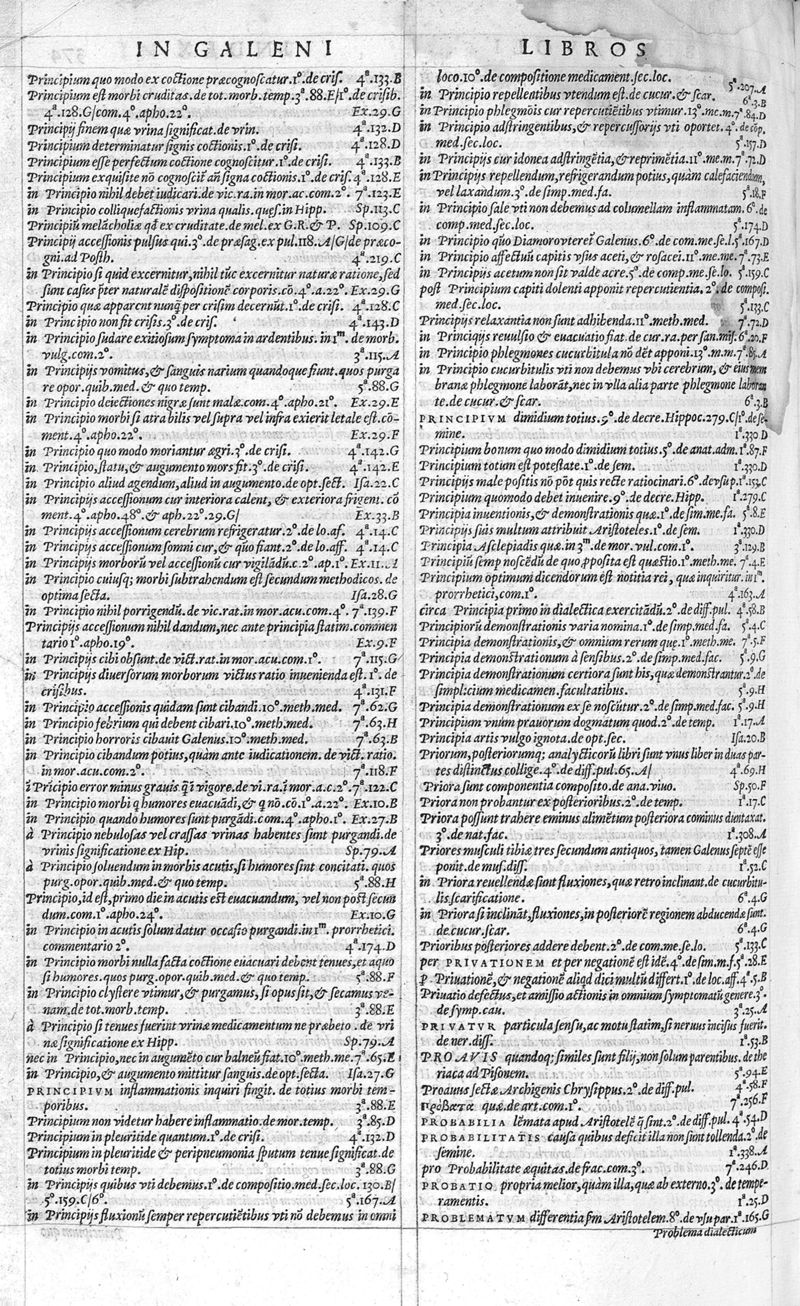 IN GALENI
Principium quo modo ex coctione præcognoscatur.1º.de cris. 4ª.133.B
Principium est morbi cruditas.de tot.morb.temp.3ª.88.E/1º.de crisib.
4ª.128.G/com.4º.apho.22º. Ex.29.G
Principij finem quæ vrina significat.de vrin. 4ª.132.D
Principium determinatur signis coctionis.1º.de crisi. 4ª.128.D
Principium esse perfectum coctione cognoscitur.1º.de crisi. 4ª.133.B
Principium exquisite nō cognoscit͛ añ signa coctionis.1º.de crisi.4ª.128.E
in Principio nihil debet iudicari.de vic.ra.in mor.ac.com.2º. 7ª.123.E
in Principio colliquefactionis vrina qualis.quæs.in Hipp. Sp.113.C
Principiū melācholiæ qđ ex cruditate.de mel.ex G.R.& P. Sp.109.C
Principij accessionis pulsus qui.3º.de præsag.ex pul.118.A/G/de præco-
gni.ad Posth. 4ª.219.C
in Principio si quid excernitur,nihil tūc excernitur naturæ ratione,sed
sunt casus p̄ter naturalē dispositionē corporis.cō.4º.a.22º. Ex.29.G
Principio quæ apparent nunq̃ per crisim decernūt.1º.de crisi. 4ª.128.C
in Principio non fit crisis.3º.de cris. 4ª.143.D
in Principio sudare exitiosum symptoma in ardentibus. in 1ᵐ. de morb.
vulg.com.2º. 3ª.115.A
in Principijs vomitus,& sanguis narium quandoque fiunt.quos purga
re opor.quib.med.& quo temp. 5ª.88.G
in Principio deiectiones nigræ sunt malæ.com.4º.apho.21º. Ex.29.E
in Principio morbi si atra bilis vel supra vel infra exierit letale est.cō-
ment.4º.apho.22º. Ex.29.F
in Principio quo modo moriantur ægri.3º.de crisi. 4ª.142.G
in Principio,statu,& augumento mors fit.3º.de crisi. 4ª.142.E
in Principio aliud agendum,aliud in augumento.de opt.sect. Isa.22.C
in Principijs accessionum cur interiora calent, & exteriora frigent. cō
ment.4º.apho.48º.& aph.22.29.G/ Ex.33.B
in Principijs accessionum cerebrum refrigeratur.2º.de lo.af. 4ª.14.C
in Principijs accessionum somni cur,& quo fiant.2º.de lo.aff. 4ª.14.C
in Principijs morborū vel accessionū cur vigilādū.c.2º.ap.1º. Ex.11.A
in Principio cuiusq; morbi subtrahendum est secundum methodicos. de
optima secta. Isa.28.G
in Principio nihil porrigendū.de vic.rat.in mor.acu.com.4º. 7ª.139.F
Principijs accessionum nihil dandum,nec ante principia statim.commen
tario 1º.apho.19º. Ex.9.F
in Principijs cibi obsunt.de vict.rat.in mor.acu.com.1º. 7ª.115.G
in Principijs diuersorum morborum victus ratio inuenienda est. 1º. de
crisibus. 4ª.131.F
in Principio accessionis quidam sunt cibandi.10º.meth.med. 7ª.62.G
Principio febrium qui debent cibari.10º.meth.med. 7ª.63.H
in Principio horroris cibauit Galenus.10º.meth.med. 7ª.63.B
in Principio cibandum potius,quàm ante iudicationem. de vict. ratio.
in mor.acu.com.2º. 7ª.118.F
ī Prīcipio error minus grauis q̃ ī vigore.de vi.ra.ī mor.a.c.2º.7ª.122.C
in Principio morbi q humores euacuādi,& q nō.cō.1º.a.22º. Ex.10.B
in Principio quando humores sunt purgādi.com.4º.apho.1º. Ex.27.B
à Principio nebulosas vel crassas vrinas habentes sunt purgandi.de
vrinis significatione.ex Hip. Sp.79.A
à Principio soluendum in morbis acutis,si humores sint concitati. quos
purg.opor.quib.med.& quo temp. 5ª.88.H
Principio,id est,primo die in acutis est euacuandum, vel non post secun
dum.com.1º.apho.24º. Ex.10.G
in Principio in acutis solum datur occasio purgandi.in 1ᵐ. prorrhetici.
commentario 2º. 4ª.174.D
in Principio morbi nulla facta coctione euacuari debent tenues,et aquo
si humores.quos purg.opor.quib.med.& quo temp. 5ª.88.F
in Principio clystere vtimur,& purgamus,si opus sit,& secamus ve-
nam.de tot.morb.temp. 3ª.88.E
à Principio si tenues fuerint vrinæ medicamentum ne præbeto . de vri
næ significatione ex Hipp. Sp.79.A
nec in Principio,nec in augumēto cur balneū fiat.10º.meth.me.7ª.65.E
in Principio,& augumento mittitur sanguis.de opt.secta. Isa.27.G
PRINCIPIVM inflammationis inquiri fingit. de totius morbi tem-
poribus. 3ª.88.E
Principium non videtur habere inflammatio.de mor.temp. 3ª.85.D
Principium in pleuritide quantum.1º.de crisi. 4ª.132.D
Principium in pleuritide & peripneumonia sputum tenue significat.de
totius morbi temp. 3ª.88.G
in Principijs quibus vti debemus.1º.de compositio.med.sec.loc. 130.B/
5º.159.C/6º. 5ª.167.A
in Principijs fluxionū semper repercutiētibus vti nō debemus in omni
LIBROS
loco.10º.de compositione medicament.sec.loc. 5ª.207.A
in Principio repellentibus vtendum est.de cucur.& scar. 6ª.3.B
in Principio phlegmōis cur repercutiētibus vtimur.13º.me.m.7ª.84.D
in Principio adstringentibus,& repercussorijs vti oportet.4º.de cōp.
med.sec.loc. 5ª.157.D
in Principijs cur idonea adstringētia,& reprimētia.11º.me.m.7ª.72.D
in Principijs repellendum,refrigerandum potius,quàm calefaciendum,
vel laxandum.3º.de simp.med.fa. 5ª.18.F
in Principio sale vti non debemus ad columellam inflammatam. 6º.de
comp.med.sec.loc. 5ª.174.D
in Principio quo Diamorvteret͛ Galenus.6º.de com.me.se.l.5ª.167.D
in Principio affectuū capitis vsus aceti,& rosacei.11º.me.me.7ª.73.E
in Principijs acetum non sit valde acre.5º.de comp.me.se.lo. 5ª.159.C
post Principium capiti dolenti apponit repercutientia. 2º.de composi.
med.sec.loc. 5ª.133.C
Principijs relaxantia non sunt adhibenda.11º.meth.med. 7ª.72.D
in Principijs reuulsio & euacuatio fiat.de cur.ra.per san.miss.6ª.20.F
in Principio phlegmones cucurbitula nō dēt apponi.13º.m.m.7ª.85.A
in Principio cucurbitulis vti non debemus vbi cerebrum, & eius mem
branæ phlegmone laborāt,nec in vlla alia parte phlegmone laboran
te.de cucur.& scar. 6ª.3.B
PRINCIPIVM dimidium totius.9º.de decre.Hippoc.279.C/1º.de se-
mine. 1ª.330.D
Principium bonum quo modo dimidium totius.5º.de anat.adm.1ª.87.F
Principium totum est potestate.1º.de sem. 1ª.330.D
Principijs male positis nō pōt quis recte ratiocinari.6º.de vsu p.1ª.153.C
Principium quomodo debet inuenire.9º.de decre.Hipp. 1ª.279.C
Principia inuentionis,& demonstrationis quæ.1º.de sim.me.fa. 5ª.8.E
Principijs suis multum attribuit Aristoteles.1º.de sem. 1ª.330.D
Principia Asclepiadis quæ.in 3º.de mor.vul.com.1º. 3ª.129.B
Principiū semp noscēdū de quo p̱posita est quæstio.1º.meth.me. 7ª.4.E
Principium optimum dicendorum est notitia rei, quæ inquiritur.in 1ᵐ.
prorrhetici,com.1º. 4ª.163.A
circa Principia primo in dialectica exercitādū.2º.de diff.pul. 4ª.58.B
Principiorū demonstrationis varia nomina.1º.de simp.med.fa. 5ª.4.C
Principia demonstrationis,& omnium rerum quę.1º.meth.me. 7ª.5.F
Principia demonstrationum à sensibus.2º.de simp.med.fac. 5ª.9.G
Principia demonstrationum certiora sunt his,quæ demonstrantur.2º.de
simplicium medicamen.facultatibus. 5ª.9.H
Principia demonstrationum ex se noscūtur.2º.de simp.med.fac. 5ª.9.H
Principium vnúm prauorum dogmatum quod.2º.de temp. 1ª.17.A
Principia artis vulgo ignota.de opt.sec. Isa.20.B
Priorum,posteriorumq; analycticorū libri sunt vnus liber in duas par-
tes distinctus collige.4º.de diff.pul.65.A/ 4ª.69.H
Priora sunt componentia composito.de ana.viuo. Sp.50.F
Priora non probantur ex posterioribus.2º.de temp. 1ª.17.C
Priora possunt trahere eminus alimētum posteriora cominus duntaxat.
3º.de nat.fac. 1ª.308.A
Priores musculi tibiæ tres secundum antiquos, tamen Galenus septē esse
ponit.de mus.diss. 1ª.52.C
in Priora reuellendæ sunt fluxiones, quæ retro inclinant.de cucurbitu-
lis scarificatione. 6ª.4.G
in Priora si inclināt,fluxiones,in posteriorē regionem abducendæ sunt.
de cucur.scar. 6ª.4.G
Prioribus posteriores addere debent.2º.de com.me.se.lo. 5ª.133.C
per PRIVATIONEM et per negationē est idē.4º.de sim.m.f.5ª.28.E
p̱ Priuationē,& negationē aliqd dici multū differt.1º.de loc.aff.4ª.5.B
Priuatio defectus,et amissio actionis in omnium symptomatū genere.3º.
de symp.cau. 3ª.25.A
PRIVATVR particula sensu,ac motu statim,si neruus incisus fuerit.
de ner.diss. 1ª.53.B
PROAVIS quandoq; similes sunt filij,non solum parentibus.de the
riaca ad Pisonem. 5ª.94.E
Proauus sectæ Archigenis Chrysippus.2º.de diff.pul. 4ª.58.F
πρόβατα quæ.de art.com.1º. 7ª.256.F
PROBABILIA lēmata apud Aristotelē q̃ sint.2º.de diff.pul. 4ª.54.D
PROBABILITATIS causa quibus deficit illa non sunt tollenda.2º.de
semine. 1ª.338.A
pro Probabilitate æquitas.de frac.com.3º. 7ª.246.D
PROBATIO propria melior,quàm illa,quæ ab externo.3º.de tempe-
ramentis. 1ª.25.D
PROBLEMATVM differentia p̃m Aristotelem.8º.de vsu par.1ª.165.G
Problema dialecticum